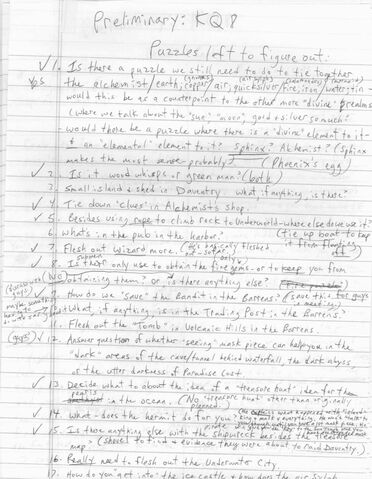 Preliminary: KQ8
Puzzles left to figure out:
✓ 1. Is there a puzzle we still need to do to tie together
yes the alchemist/earth, copper/air, quicksilver/fire, iron/water, tin -
would this be as a counterpoint to the other more "divine" realms
(where we talk about the "sun", "moon", gold & silver so much -
would there be a puzzle where there is a "divine" element to it -
& an "elemental" element to it? Sphinx? Alchemist? (Sphinx
makes the most sense probably) (Phoenix's egg)
✓ 2. Is it wood whisps or green man? (both)
3. Small island & shed in Daventry - what if anything, is there?
✓ 4. Tie down "clues" in Alchemist's Shop.
✓ 5. Besides using rope to climb rock to Underworld - where else do we use it?
6. What's in the pub in the harbor? (tie up boat to keep it from floating off)
✓ 7. Flesh out Wizard more. (He's basically fleshed out - so far)
✓ 8. Is the only use to obtain the fire gems - or to keep you from
(no) obtaining them? or is there anything else?
9. How do we "save" the Bandit in the Barrens? (save this for guys
10. What, if anything, is in the Trading Post in the Barrens?
11. Flesh out the "Tomb" in Volcanic Hills in the Barrens.
(guys?) ✓ 12. Answer question of whether "seeing" mask piece can help you in the
"dark" areas of the cave/tunnel behind waterfall, the dark abyss,
or the utter darkness of Paradise Lost
✓ 13. Decide what to about the idea of a "treasure hunt" idea for the
pearls in the ocean. (No "treasure hunt" other than originally planned)
✓ 14. What does the hermit do for you?
✓ 15. Is there anything else with the shipwreck besides the treasure
map? (shovel to find & evidence they were about to raid Daventry)
16. Really need to flesh out the Underwater City.
17. How do you "get" into the ice castle & how does the air sylph